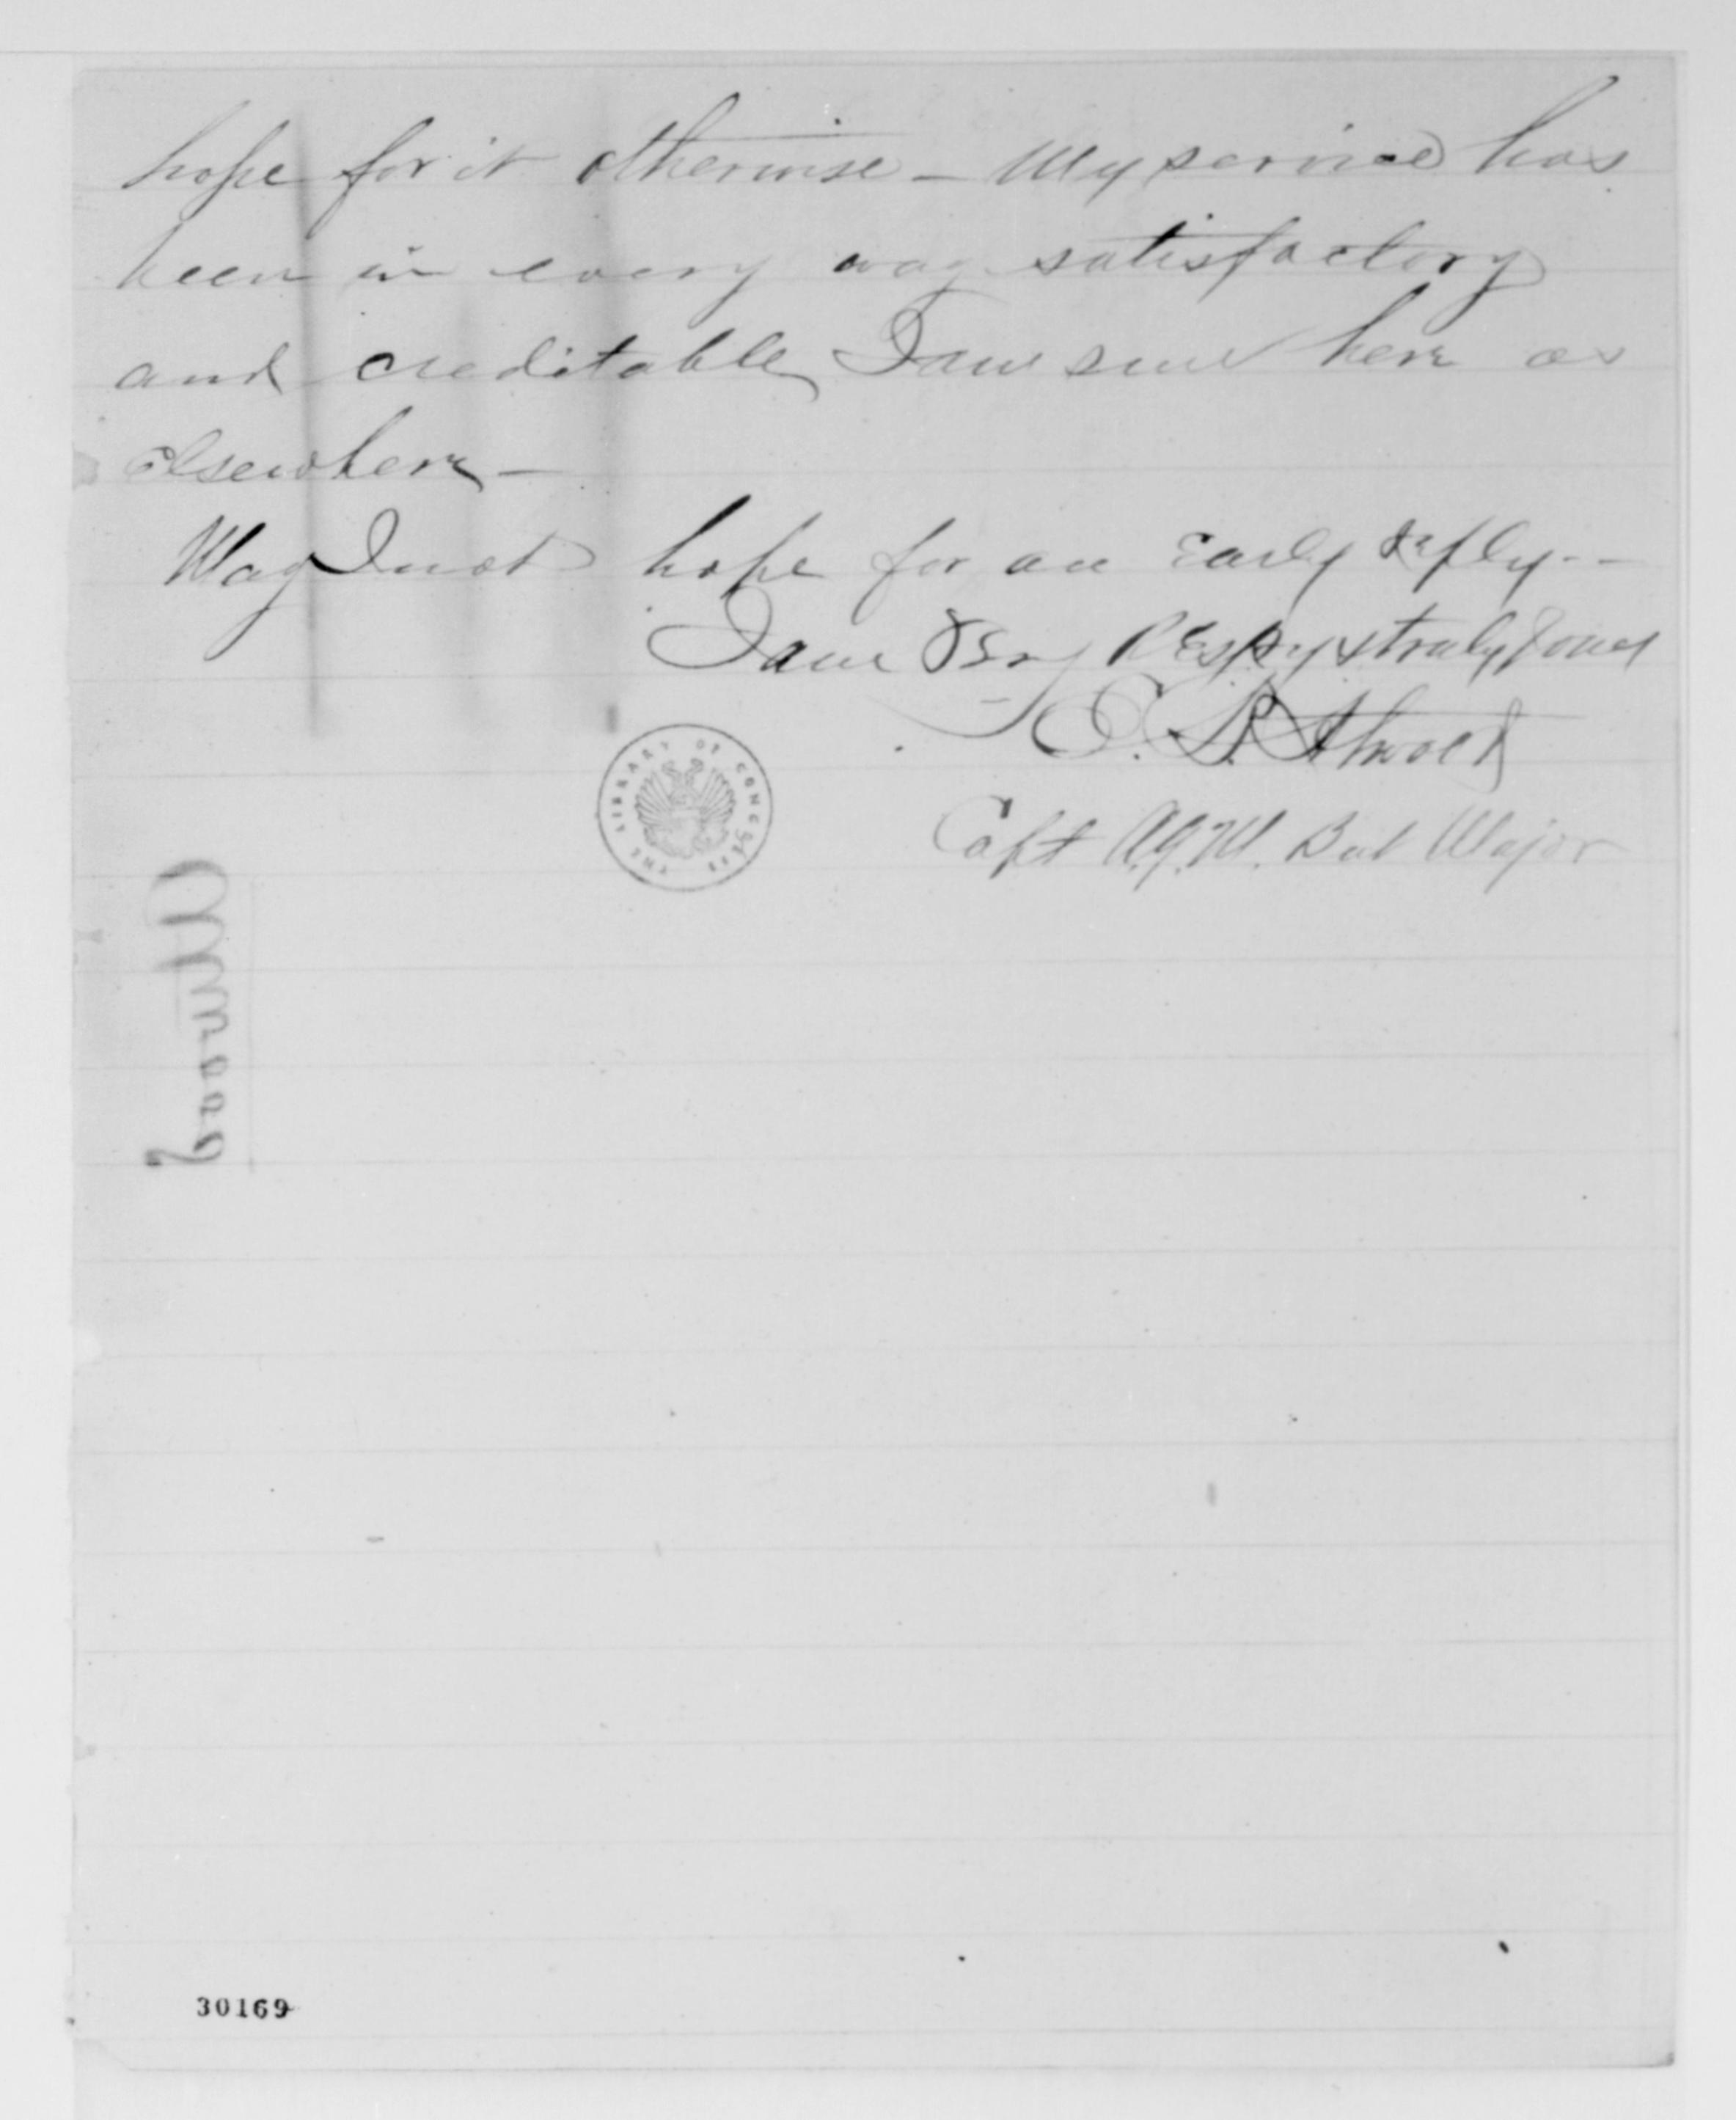 hope for it otherwise — My service has
been in every way satisfactory
and creditable I am sure here as
elsewhere —
May I not hope for an Early Reply —
I am Very Respy & truly Yours
E. B. Atwood
Capt A.Q.M. Bvt Major
THE LIBRARY OF CONGRESS
Atwood
30169